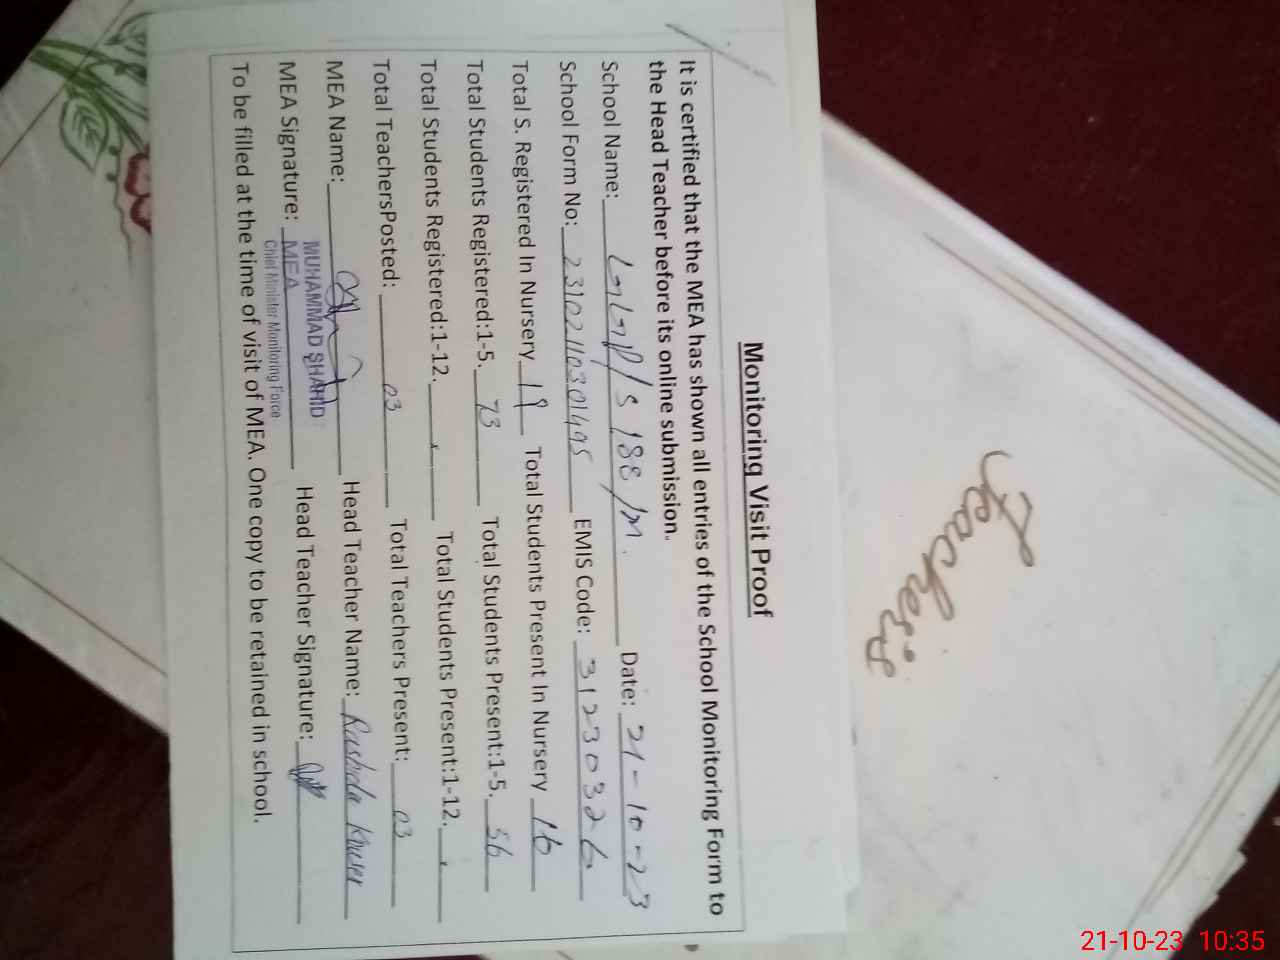 Monitoring Visit Proof
It is certified that the MEA has shown all entries of the School Monitoring Form to
the Head Teacher before its online submission.
School Name: GGP/S 188/M. Date: 21-10-23
School Form No: 23102110301495 EMIS Code: 31230326
Total S. Registered In Nursery 19 Total Students Present In Nursery 16
Total Students Registered:1-5. 73 Total Students Present:1-5. 56
Total Students Registered:1-12. Total Students Present:1-12.
Total TeachersPosted: 03 Total Teachers Present: 03
MEA Name: Head Teacher Name: Rashida Kouser
MUHAMMAD SHAHID
MEA Signature: MEA Head Teacher Signature:
Chief Minister Monitoring Force
To be filled at the time of visit of MEA. One copy to be retained in school.
21-10-23 10:35